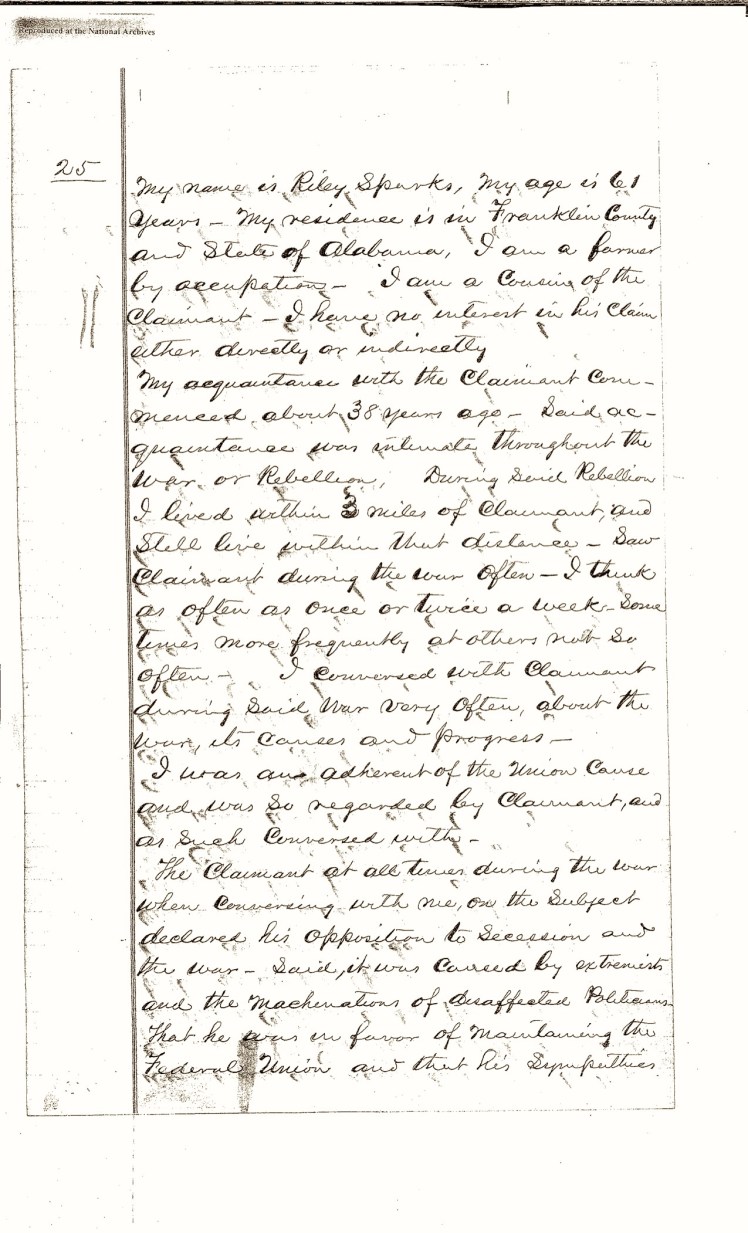 Reproduced at the National Archives
25
My name is Riley Sparks, My age is 61
Years - My residence is in Franklin County
and State of Alabama, I am a farmer
by occupation - I am a Cousin of the
Claimant - I have no interest in his Claim
either directly or indirectly
My acquaintance with the Claimant Com-
menced about 38 years ago - Said ac-
quaintance was intimate throughout the
War or Rebellion, During said Rebellion
I lived within 3 miles of Claimant, and
Still live within that distance - Saw
Claimant during the war often - I think
as often as once or twice a week - Some
times more frequently at others not so
often - I conversed with Claimant
during said War very often, about the
War, its Causes and progress -
I was an adherent of the Union Cause
and was So regarded by Claimant, and
as Such Conversed with -
The Claimant at all times during the war
when conversing with me, on the Subject
declared his opposition to Secession and
the war - Said, it was Caused by extremists
and the Machinations of disaffected Politicians
That he was in favor of Maintaining the
Federal Union and that his Sympathies